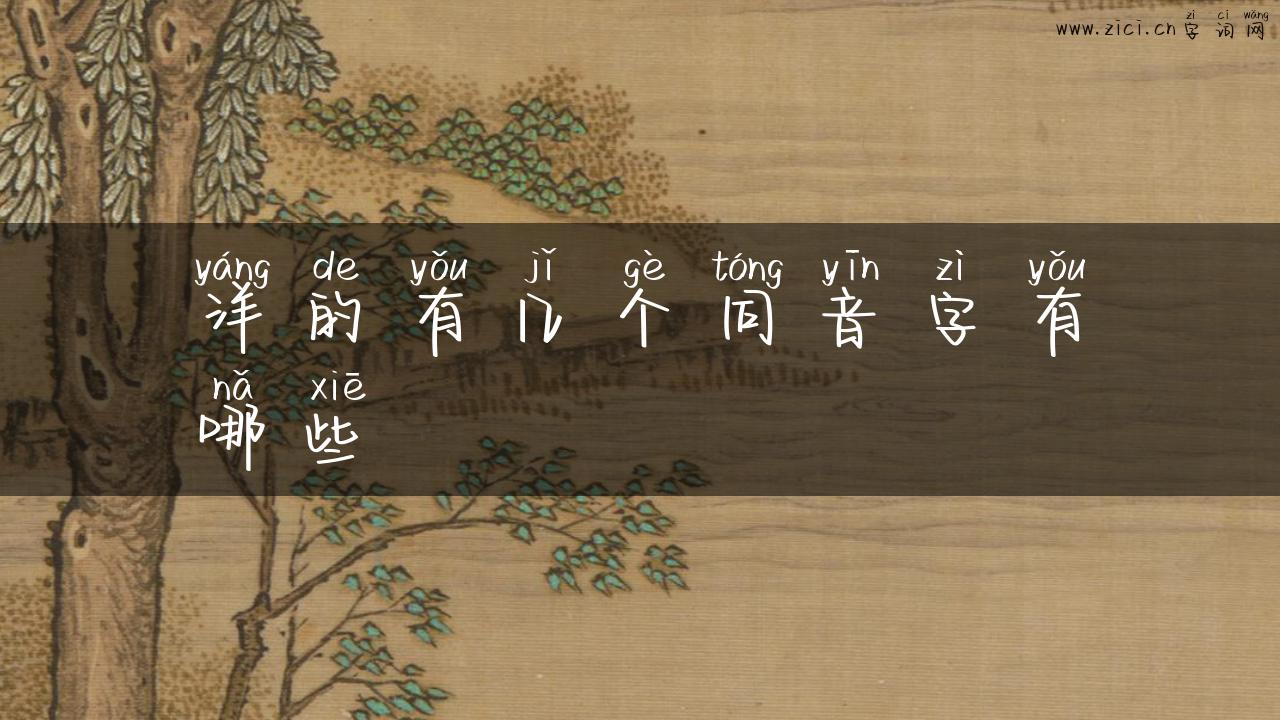 zì cí wǎng
www.zici.cn 字词网
yáng de yǒu jǐ gè tóng yīn zì yǒu
洋的有几个同音字有
nǎ xiē
哪些